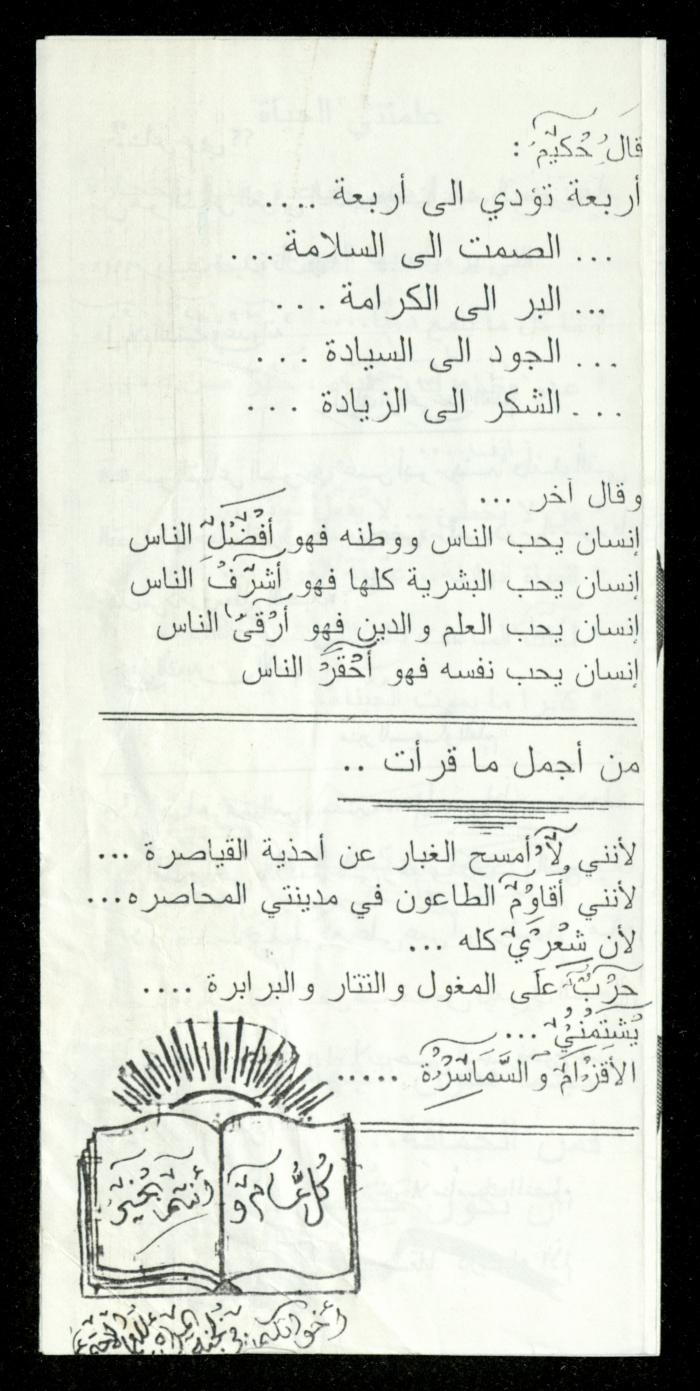 قال حكيم :
أربعة تؤدي الى أربعة ....
... الصمت الى السلامة ...
... البر الى الكرامة ...
... الجود الى السيادة ...
... الشكر الى الزيادة ...
وقال آخر ...
إنسان يحب الناس ووطنه فهو أفضل الناس
إنسان يحب البشرية كلها فهو أشرف الناس
إنسان يحب العلم والدين فهو أرقى الناس
إنسان يحب نفسه فهو أحقر الناس
من أجمل ما قرأت ..
لأنني لا أمسح الغبار عن أحذية القياصرة ...
لأنني أقاوم الطاعون في مدينتي المحاصره...
لأن شعري كله ...
حرب على المغول والتتار والبرابرة ....
يشتمني ...
الأقزام والسماسرة .....
كل عام و أنتم بخير
أخوانكم في لجنة